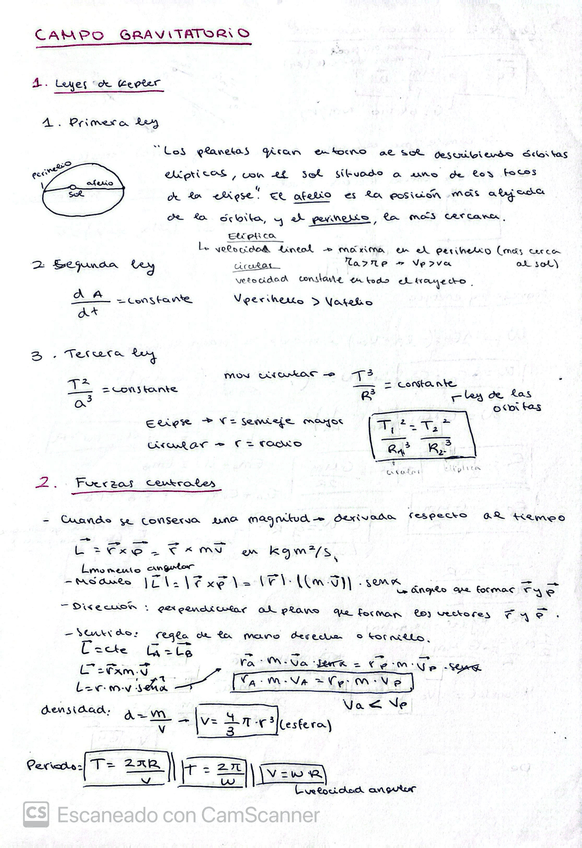 CAMPO GRAVITATORIO
1. Leyes de Kepler
1. Primera ley
"Los planetas giran entorno al sol describiendo órbitas
perihelio
afelio
sol
elípticas, con el sol situado a uno de los focos
de la elipse". El afelio es la posición más alejada
de la órbita, y el perihelio, la más cercana.
Elíptica
↳ velocidad lineal → máxima en el perihelio (más cerca al sol)
2 Segunda ley
circular
ra>rp → vp>va
velocidad constante en todo el trayecto.
dA/dt = constante
Vperihelio > Vafelio
3. Tercera ley
T²/a³ = constante
mov circular → T³/R³ = constante
ley de las órbitas
Elipse → r = semieje mayor
circular → r = radio
T₁²/R₁³ = T₂²/R₂³
circular elíptica
2. Fuerzas centrales
- Cuando se conserva una magnitud → derivada respecto al tiempo
L⃗ = r⃗ × p⃗ = r⃗ × mv⃗ en kgm²/s,
↳momento angular
- Módulo |L⃗| = |r⃗ × p⃗| = |r⃗| · |(m·v⃗)| · senα
↳ ángulo que forman r⃗ y p⃗
- Dirección: perpendicular al plano que forman los vectores r⃗ y p⃗.
- Sentido: regla de la mano derecha o tornillo.
L⃗ = cte L⃗A = L⃗B
L⃗ = r⃗×m·v⃗
r⃗a · m · v⃗a · senα = r⃗p · m · v⃗p · senα
L = r·m·v·senα
rA · m · vA = rp · m · vp
Va < Vp
densidad: d = m/v → V = 4/3 π · r³ (esfera)
Periodo: T = 2πR/v || T = 2π/ω || V = ω·R
↳velocidad angular
CS Escaneado con CamScanner